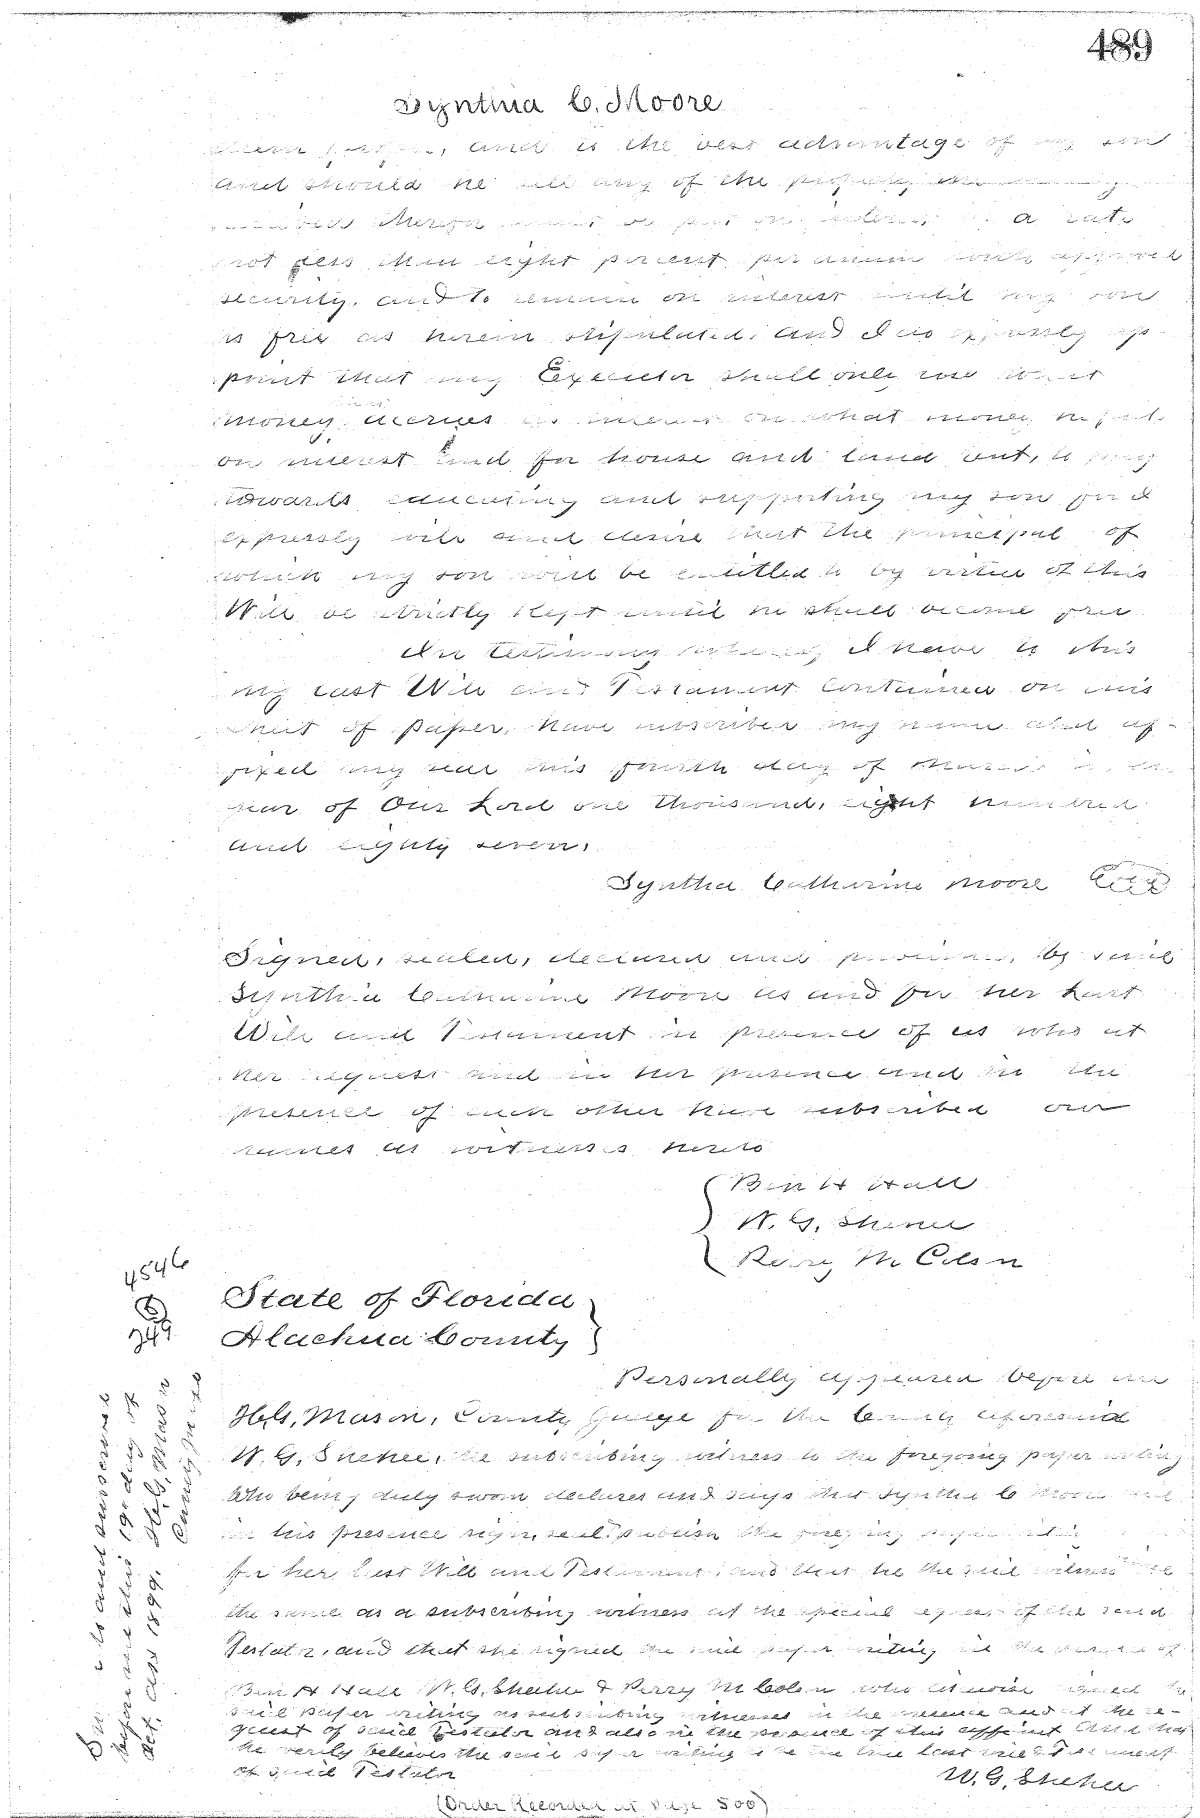 489
Synthia C. Moore
and to the best advantage of my son
and should he sell any of the property the money
therefor must be put on interest a rate
not less than eight percent per annum with approved
security, and to remain on interest until my son
is free as herein stipulated, and I do expressly ap-
point that my Executor shall only use what
money accrues as interest on what money is put
on interest and for house and land rent, to pay
towards educating and supporting my son for I
expressly will and desire that the principal of
which my son will be entitled to by virtue of this
Will be strictly kept until he shall become free
In testimony whereof I have to this
my last Will and Testament contained on this
sheet of paper, have subscribed my name and af-
fixed my seal this fourth day of March in the
year of Our Lord one thousand, eight hundred
and eighty seven.
Syntha Catherine Moore
Signed, sealed, declared and by said
Synthia Catharine Moore as and for her Last
Will and Testament in presence of us who at
her request and in her presence and in the
presence of each other have subscribed our
names as witnesses hereto
Ben H Hall
W. G. Shehee
Perry M Colson
4546
B
249
State of Florida
Alachua County
Personally appeared before me
H.G. Mason, County Judge for the County aforesaid
W. G. Shehee, the subscribing witness to the foregoing paper writing
who being duly sworn declares and says that Synthia C Moore did
in his presence sign, seal, publish the foregoing paper writing
for her last Will and Testament, and that he the said witness
the same as a subscribing witness at the special request of the said
Testator, and that she signed the said paper writing in the presence of
Ben H Hall W. G. Shehee & Perry M Colson who likewise signed the
said paper writing as subscribing witnesses in the presence and at the re-
quest of said Testator and also in the presence of this affiant And that
he verily believes the said paper writing to be the true last will & Testament
of said Testator
W. G. Shehee
Sworn to and subscribed
before me this 19" day of
Oct. AD 1899. H.G. Mason
County Judge
(Order Recorded at Page 500)